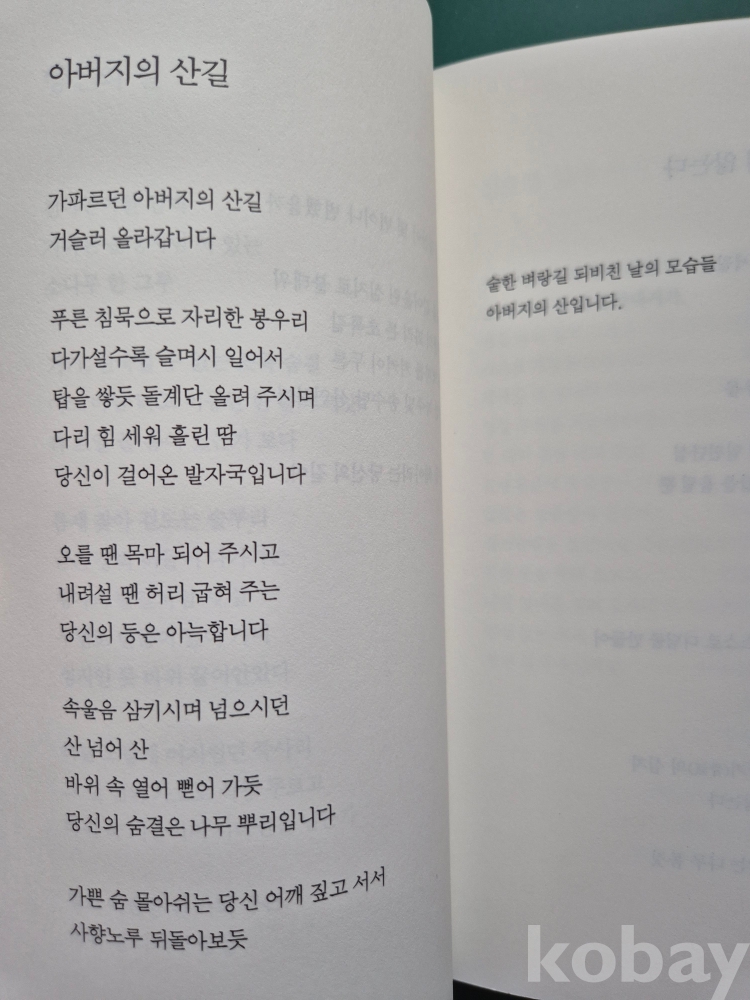 아버지의 산길
가파르던 아버지의 산길
거슬러 올라갑니다
푸른 침묵으로 자리한 봉우리
다가설수록 슬며시 일어서
탑을 쌓듯 돌계단 올려 주시며
다리 힘 세워 흘린 땀
당신이 걸어온 발자국입니다
오를 땐 목마 되어 주시고
내려설 땐 허리 굽혀 주는
당신의 등은 아늑합니다
속울음 삼키시며 넘으시던
산 넘어 산
바위 속 열어 뻗어 가듯
당신의 숨결은 나무 뿌리입니다
가쁜 숨 몰아쉬는 당신 어깨 짚고 서서
사향노루 뒤돌아보듯
숱한 벼랑길 되비친 날의 모습들
아버지의 산입니다.
kobay